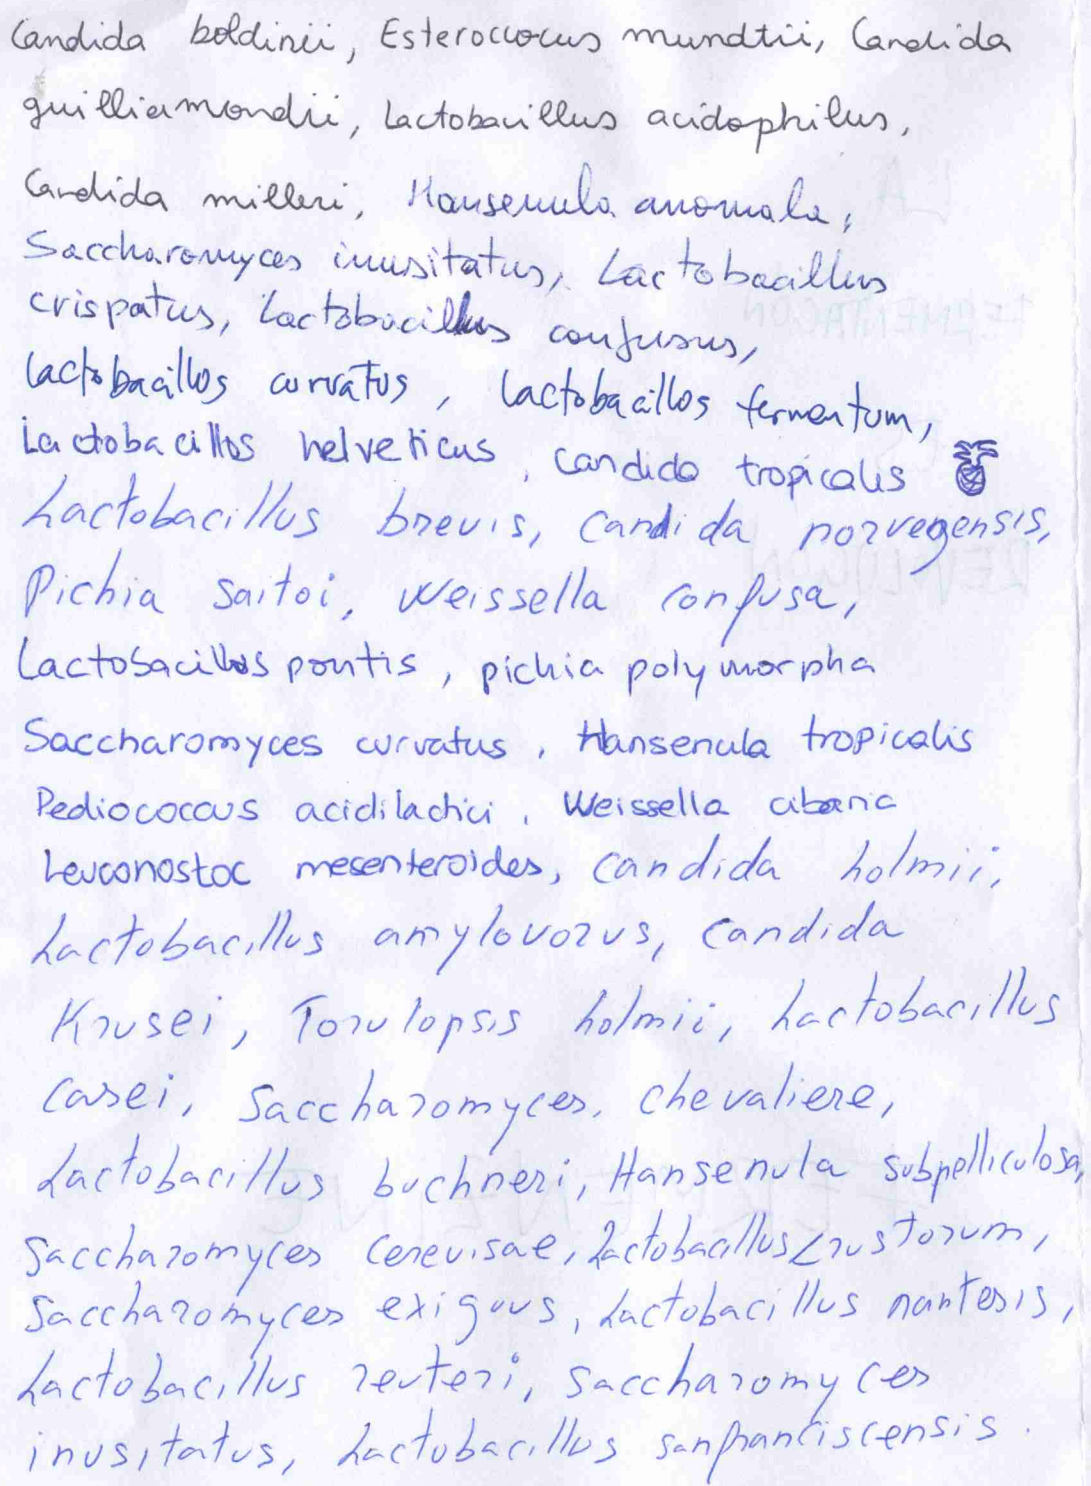 Candida boldinii, Esteroccocus mundtii, Candida
guilliermondii, Lactobacillus acidophilus,
Candida milleri, Hansenula anomala,
Saccharomyces inusitatus, Lactobacillus
crispatus, Lactobacillus confusus,
lactobacillos curvatus, lactobacillos fermentum,
Lactobacillos helveticus, candida tropicalis
Lactobacillus brevis, Candida norvegensis,
Pichia saitoi, Weissella confusa,
Lactobacillus pontis, pichia polymorpha
Saccharomyces curvatus, Hansenula tropicalis
Pediococcus acidilactici, Weissella cibaria
Leuconostoc mesenteroides, Candida holmii,
Lactobacillus amylovorus, Candida
Krusei, Torulopsis holmii, Lactobacillus
casei, Saccharomyces. chevaliere,
Lactobacillus buchneri, Hansenula subpelliculosa,
Saccharomyces cerevisae, Lactobacillus crustorum,
Saccharomyces exiguus, Lactobacillus nantesis,
Lactobacillus reuteri, Saccharomyces
inusitatus, Lactobacillus sanfranciscensis.